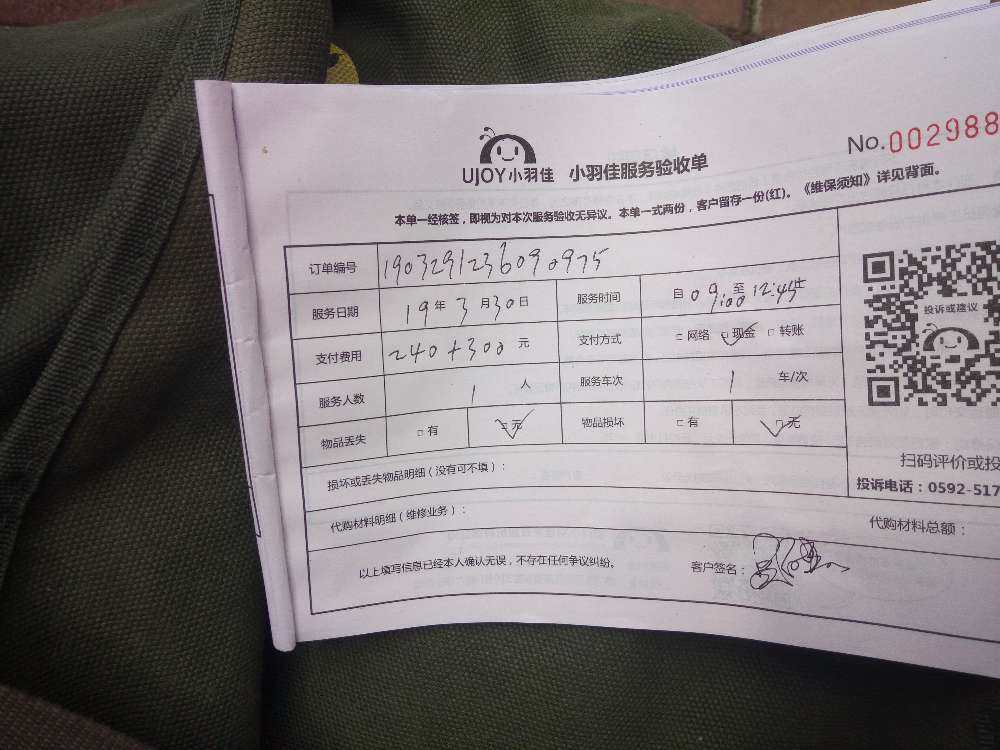 No.002988
UJOY小羽佳 小羽佳服务验收单
本单一经核签，即视为对本次服务验收无异议。本单一式两份，客户留存一份(红)。《维保须知》详见背面。
订单编号 190329123609 0975
服务日期 19年3月30日 服务时间 自09:00至12:45止
支付费用 240+300元 支付方式 □网络 ☑现金 □转账
服务人数 1人 服务车次 1车/次
物品丢失 □有 ☑无 物品损坏 □有 ☑无
投诉或建议
扫码评价或投
投诉电话：0592-517
损坏或丢失物品明细（没有可不填）：
代购材料明细（维修业务）： 代购材料总额：
以上填写信息已经本人确认无误，不存在任何争议纠纷。 客户签名：